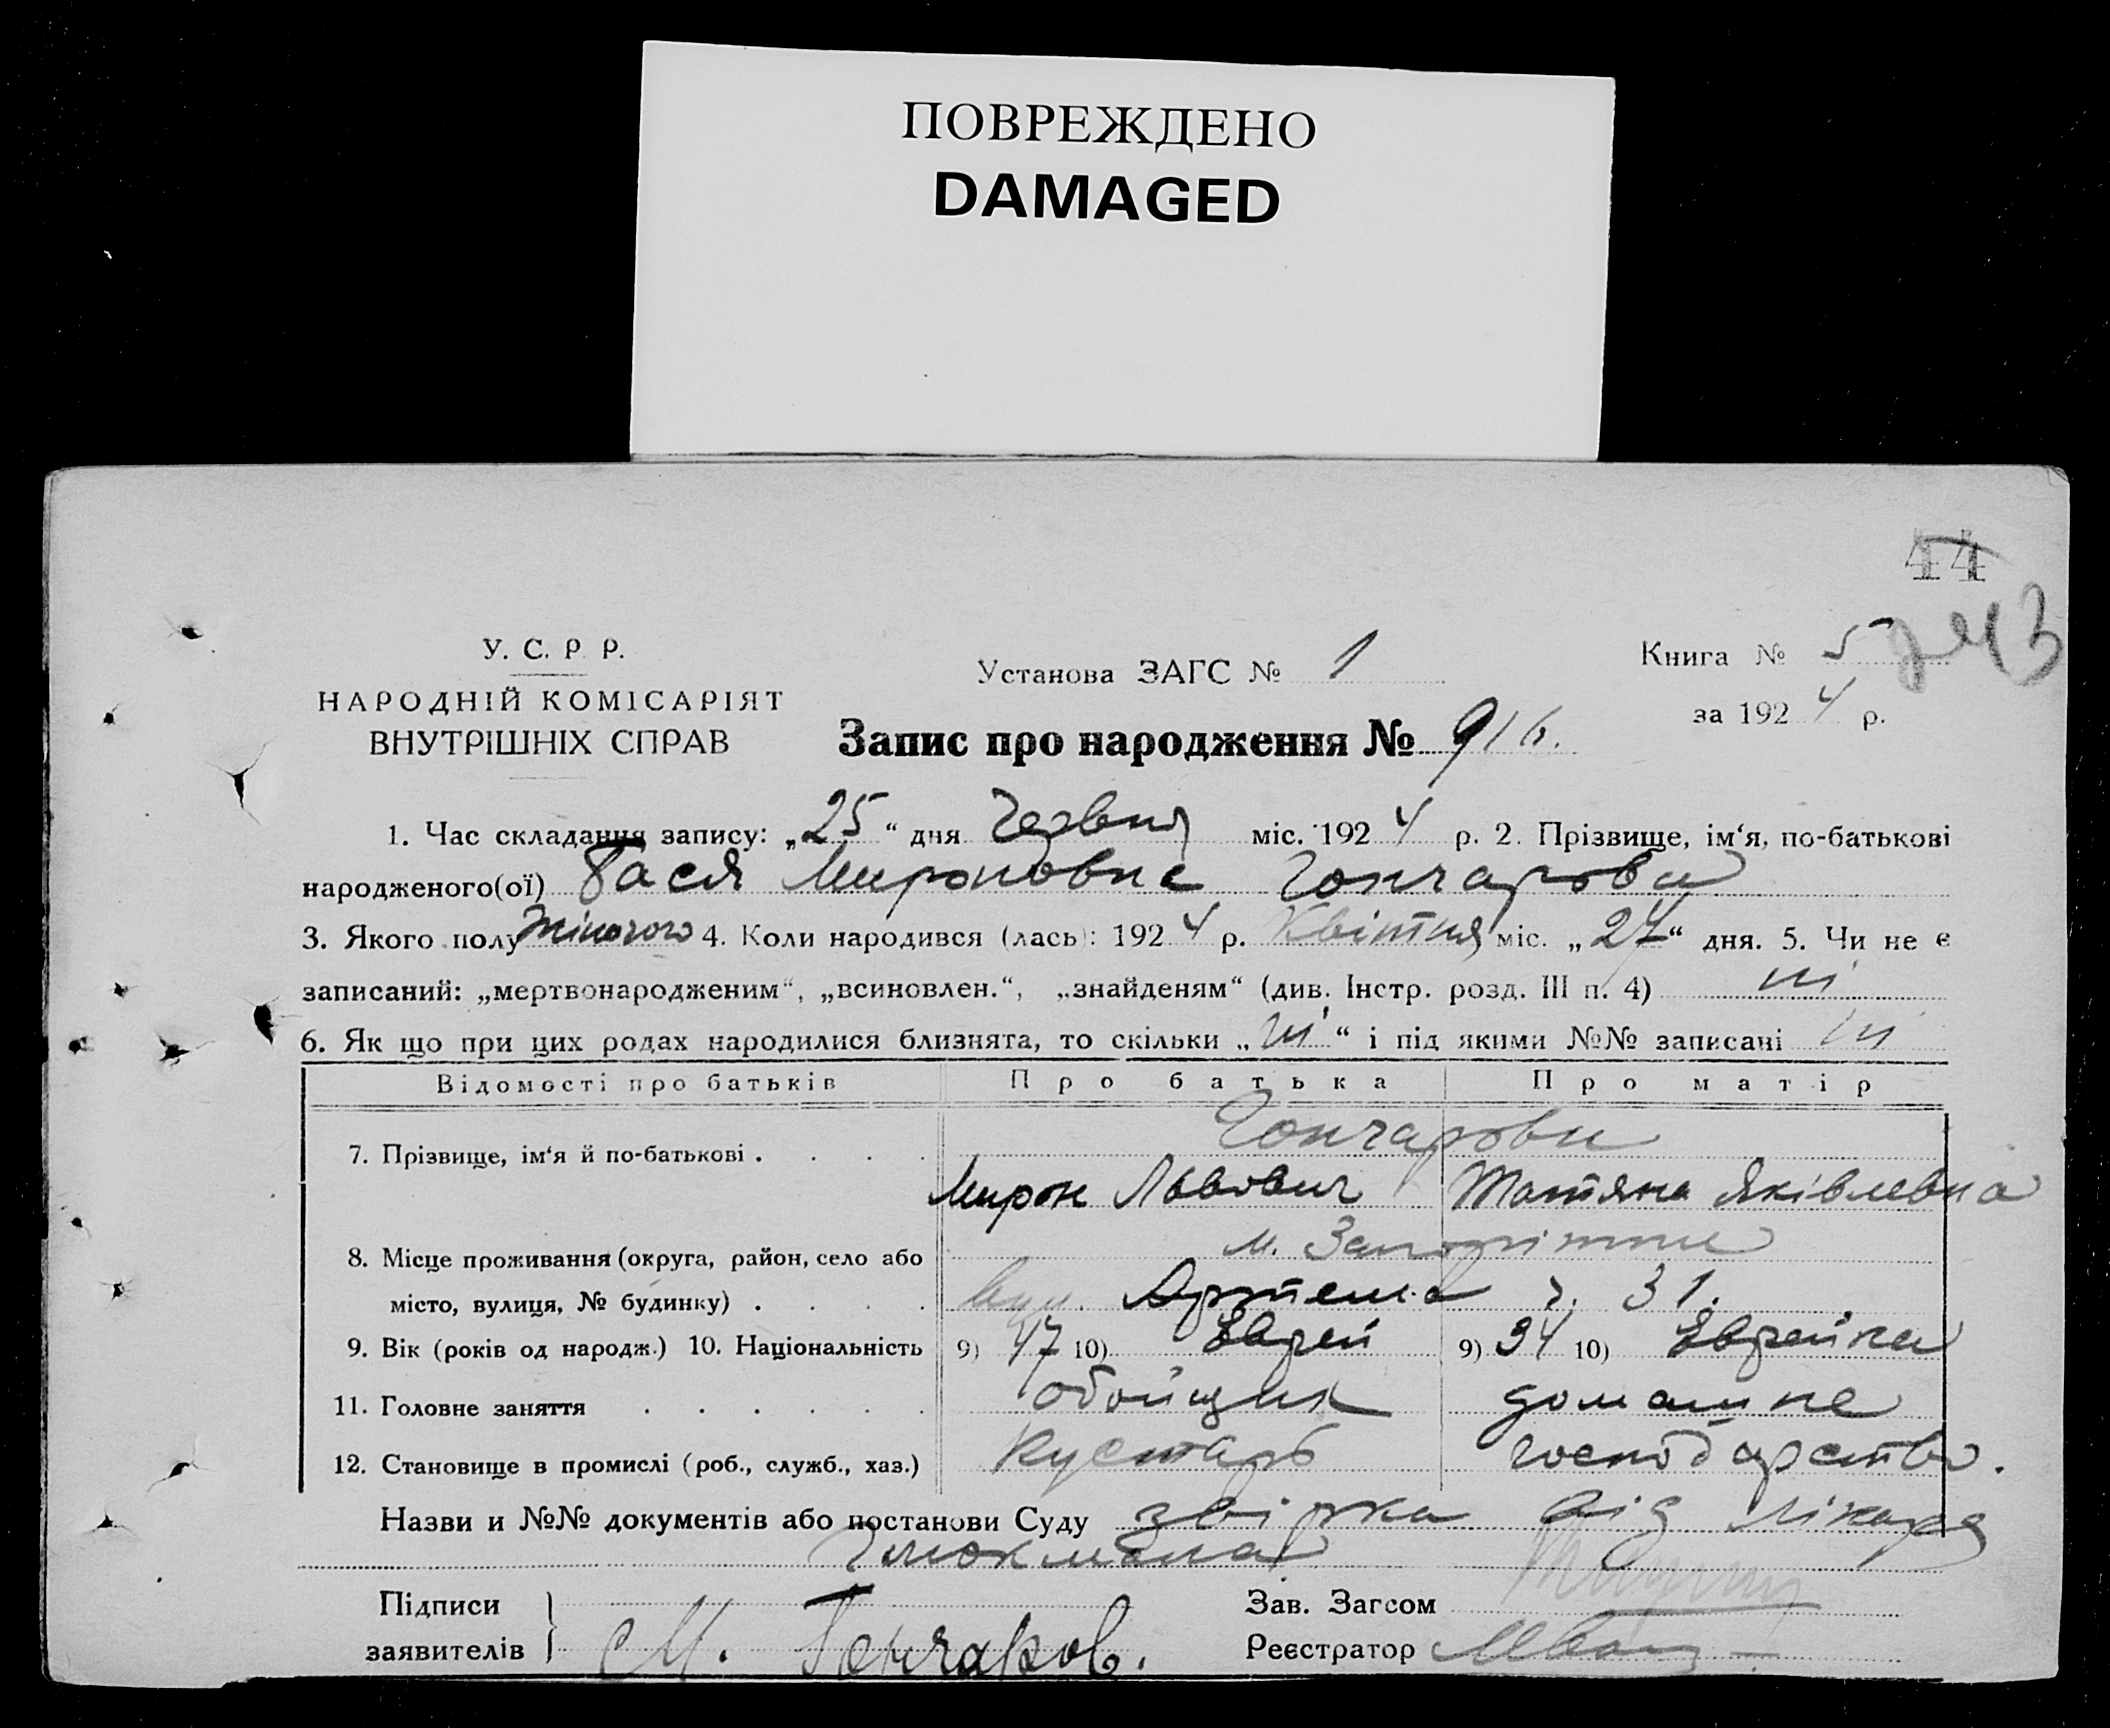 ПОВРЕЖДЕНО
DAMAGED
44
243
У. С. Р. Р.
НАРОДНІЙ КОМІСАРІЯТ
ВНУТРІШНІХ СПРАВ
Установа ЗАГС № 1
Книга № 5
за 1924 р.
Запис про народження № 916.
1. Час складання запису: „25“ дня Червня міс. 1924 р. 2. Прізвище, ім‘я, по-батькові
народженого(ої) Бася Мироновна Гончарова
3. Якого полу жіночого 4. Коли народився (лась): 1924 р. Квітня міс. „27“ дня. 5. Чи не є
записаний: „мертвонародженим“, „всиновлен.“, „знайденям“ (див. Інстр. розд. III п. 4) ні
6. Як що при цих родах народилися близнята, то скільки „ні“ і під якими №№ записані ні
Відомості про батьків Про батька Про матір
7. Прізвище, ім‘я й по-батькові . . . . Гончарови
Мирон Львович Татяна Яківлевна
8. Місце проживання (округа, район, село або м. Запоріжжя
місто, вулиця, № будинку) . . . . вул. Артема ч. 31.
9. Вік (років од народж.) 10. Національність 9) 47 10) Еврей 9) 34 10) Еврейка
11. Головне заняття . . . . . . обойщик домашне
12. Становище в промислі (роб., служб., хаз.) Кустарь господарство.
Назви и №№ документів або постанови Суду від лікаря
Підписи
заявителів М. Гончаров.
Зав. Загсом
Реєстратор